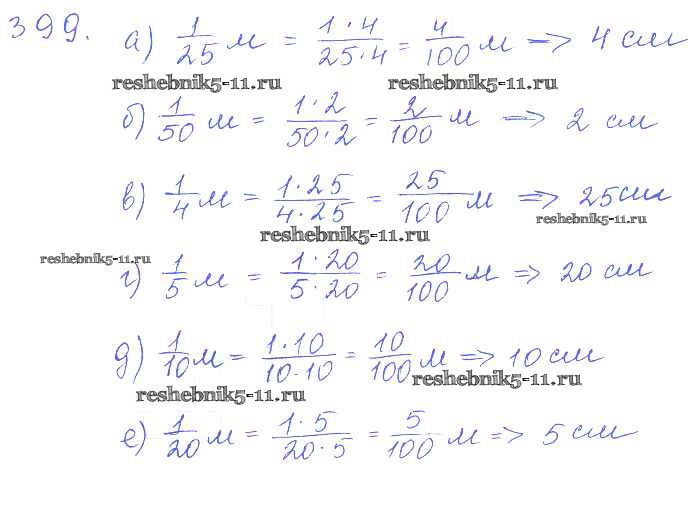 399. а) 1/25 м = 1·4/25·4 = 4/100 м => 4 см
reshebnik5-11.ru reshebnik5-11.ru
б) 1/50 м = 1·2/50·2 = 2/100 м => 2 см
в) 1/4 м = 1·25/4·25 = 25/100 м => 25 см
reshebnik5-11.ru
reshebnik5-11.ru
reshebnik5-11.ru
г) 1/5 м = 1·20/5·20 = 20/100 м => 20 см
д) 1/10 м = 1·10/10·10 = 10/100 м => 10 см
reshebnik5-11.ru reshebnik5-11.ru
е) 1/20 м = 1·5/20·5 = 5/100 м => 5 см